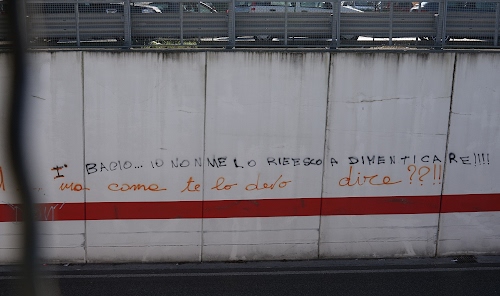 I° BACIO... IO NON ME LO RIEESCO A DIMENTICARE!!!!
ma come te lo devo dire??!!